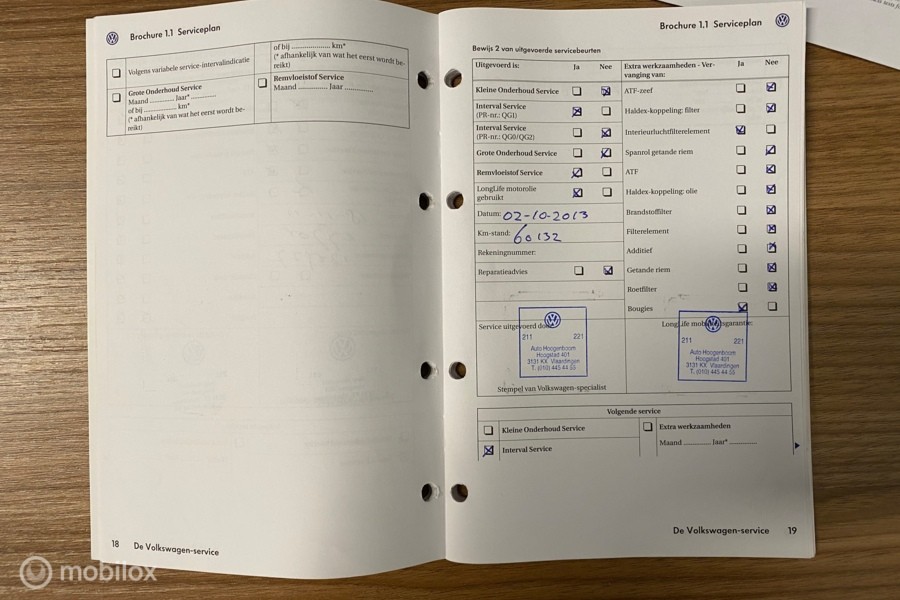 Brochure 1.1 Serviceplan
Volgens variabele service-intervalindicatie
Grote Onderhoud Service
Maand .......... Jaar* ..............
of bij .................. km*
(* afhankelijk van wat het eerst wordt be-
reikt)
of bij .................. km*
(* afhankelijk van wat het eerst wordt be-
reikt)
Remvloeistof Service
Maand .......... Jaar ............
18 De Volkswagen-service
Brochure 1.1 Serviceplan
Bewijs 2 van uitgevoerde servicebeurten
Uitgevoerd is: Ja Nee
Kleine Onderhoud Service
Interval Service
(PR-nr.: QG1)
Interval Service
(PR-nr.: QG0/QG2)
Grote Onderhoud Service
Remvloeistof Service
LongLife motorolie
gebruikt
Datum: 02-10-2013
Km-stand: 60132
Rekeningnummer:
Reparatieadvies
Extra werkzaamheden - Ver-
vanging van: Ja Nee
ATF-zeef
Haldex-koppeling: filter
Interieurluchtfilterelement
Spanrol getande riem
ATF
Haldex-koppeling: olie
Brandstoffilter
Filterelement
Additief
Getande riem
Roetfilter
Bougies
Service uitgevoerd door:
211 221
Auto Hoogenboom
Hoogstad 401
3131 KX Vlaardingen
T. (010) 445 44 55
Stempel van Volkswagen-specialist
LongLife mobiliteitsgarantie:
211 221
Auto Hoogenboom
Hoogstad 401
3131 KX Vlaardingen
T. (010) 445 44 55
Volgende service
Kleine Onderhoud Service
Interval Service
Extra werkzaamheden
Maand .......... Jaar* ..........
De Volkswagen-service 19
mobilox